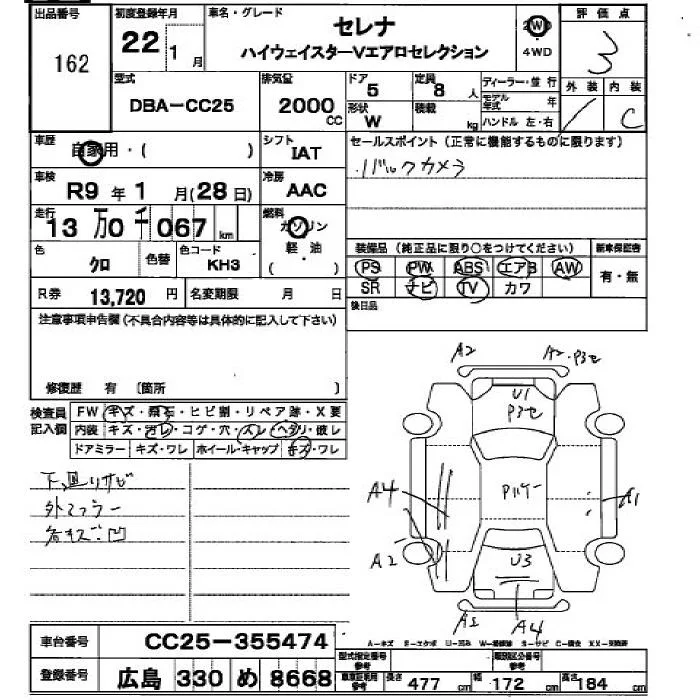 出品番号 162
初度登録年月 22 年 1 月
車名・グレード セレナ
ハイウェイスターVエアロセレクション
2WD
4WD
評価点 3
外装 内装 C
型式 DBA-CC25
排気量 2000 CC
ドア 5
形状 W
定員 8 人
積載 kg
ディーラー・並行
モデル年式 年
ハンドル 左・右
車歴 自家用・( )
シフト IAT
セールスポイント(正常に機能するものに限ります)
バックカメラ
車検 R9 年 1 月(28 日)
冷房 AAC
走行 13 万 0 千 067 km
燃料 ガソリン
軽・油
( )
色 クロ
色替
色コード KH3
装備品(純正品に限り○をつけてください)
新車保証書
PS PW ABS エアB AW
SR ナビ TV カワ
有・無
R券 13,720 円
名変期限 月 日
後日品
注意事項申告欄(不具合内容等は具体的に記入して下さい)
修復歴 有 〔箇所 〕
検査員記入欄
FW キズ・飛石・ヒビ割・リペア跡・X要
内装 キズ・汚レ・コゲ・穴・スレ・ヘタリ・破レ
ドアミラー キズ・ワレ ホイール・キャップ キズ・ワレ
下廻りサビ
外
各キズ凹
A2
A2・P3セ
U1
P3セ
A4
Pルーフ
A1
A2
U3
A2
A4
車台番号 CC25-355474
登録番号 広島 330 め 8668
型式指定番号 参考
類別区分番号 参考
車車証専用 参考
長さ 477 cm
幅 172 cm
高さ 184 cm